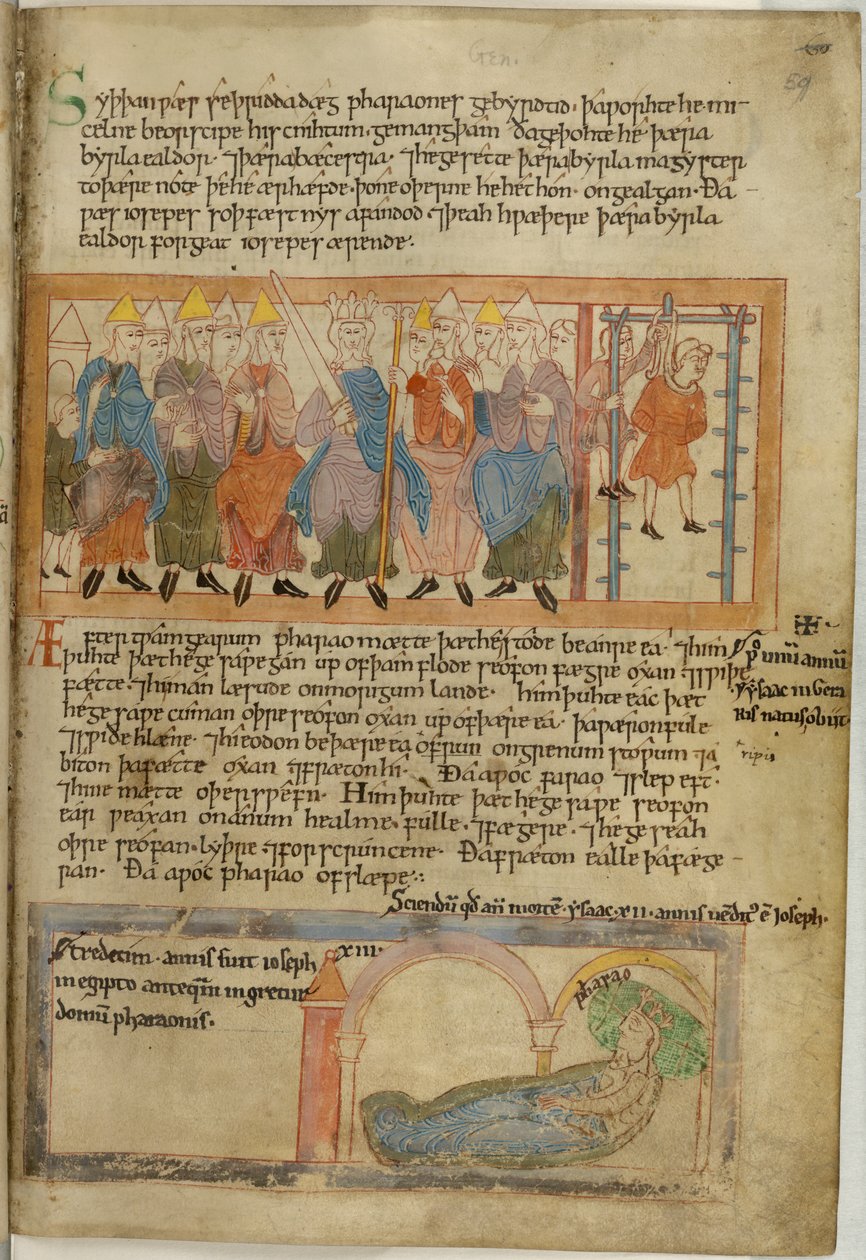 Gen.
59
Syþþan ƿæs se þridda dæg pharaones gebyrdtid· þa ƿorhte he mi-
celne beorscipe his cnihtum· gemang þam ða geþohte he þæra
byrla ealdor· ⁊ þæra bæcestra· ⁊ he gesette þæra byrla magyster
to þære note þe he ær hæfde· þone oþerne he het hon· on gealgan· Ða
ƿæs iosepes soþfæstnys afandod ⁊ þeah hƿæþere þæra byrla
ealdor forgeat iosepes ærende·
Æfter tƿam gearum pharao mætte þæt he stode be anre ea· ⁊ him
þuhte þæt he gesaƿe gan up of þam flode seofon fægre oxan ⁊ sƿiþe
fætte· ⁊ hi man læsude on morigum lande· him þuhte eac þæt
he gesaƿe cuman oþre seofon oxan up of þære ea· þa ƿæron fule
⁊ sƿiðe hlæne· ⁊ hi eodon be þære ea ofrum on grenum stoƿum ⁊ a
biton þa fætte oxan ⁊ fræton hi· Ða aƿoc farao ⁊ slep eft·
⁊ hine mætte oþer sƿefn· Him þuhte þæt he gesaƿe seofon
ear ƿeaxan on anum healme· fulle· ⁊ fægere· ⁊ he geseah
oþre seofan· lyþre ⁊ forscruncene· Ða fræton ealle þa fæge-
ran· Ða aƿoc pharao of slæpe:
unū annū
ysaac in gera
ris natus, obiit·
ripis
Sciendū qđ añ mortē· ysaac· xii· annis uēdit᷒ ē Ioseph·
tredecim· annis fuit ioseph xiii·
in egipto anteq̄m ingretur
domū pharaonis·
pharao